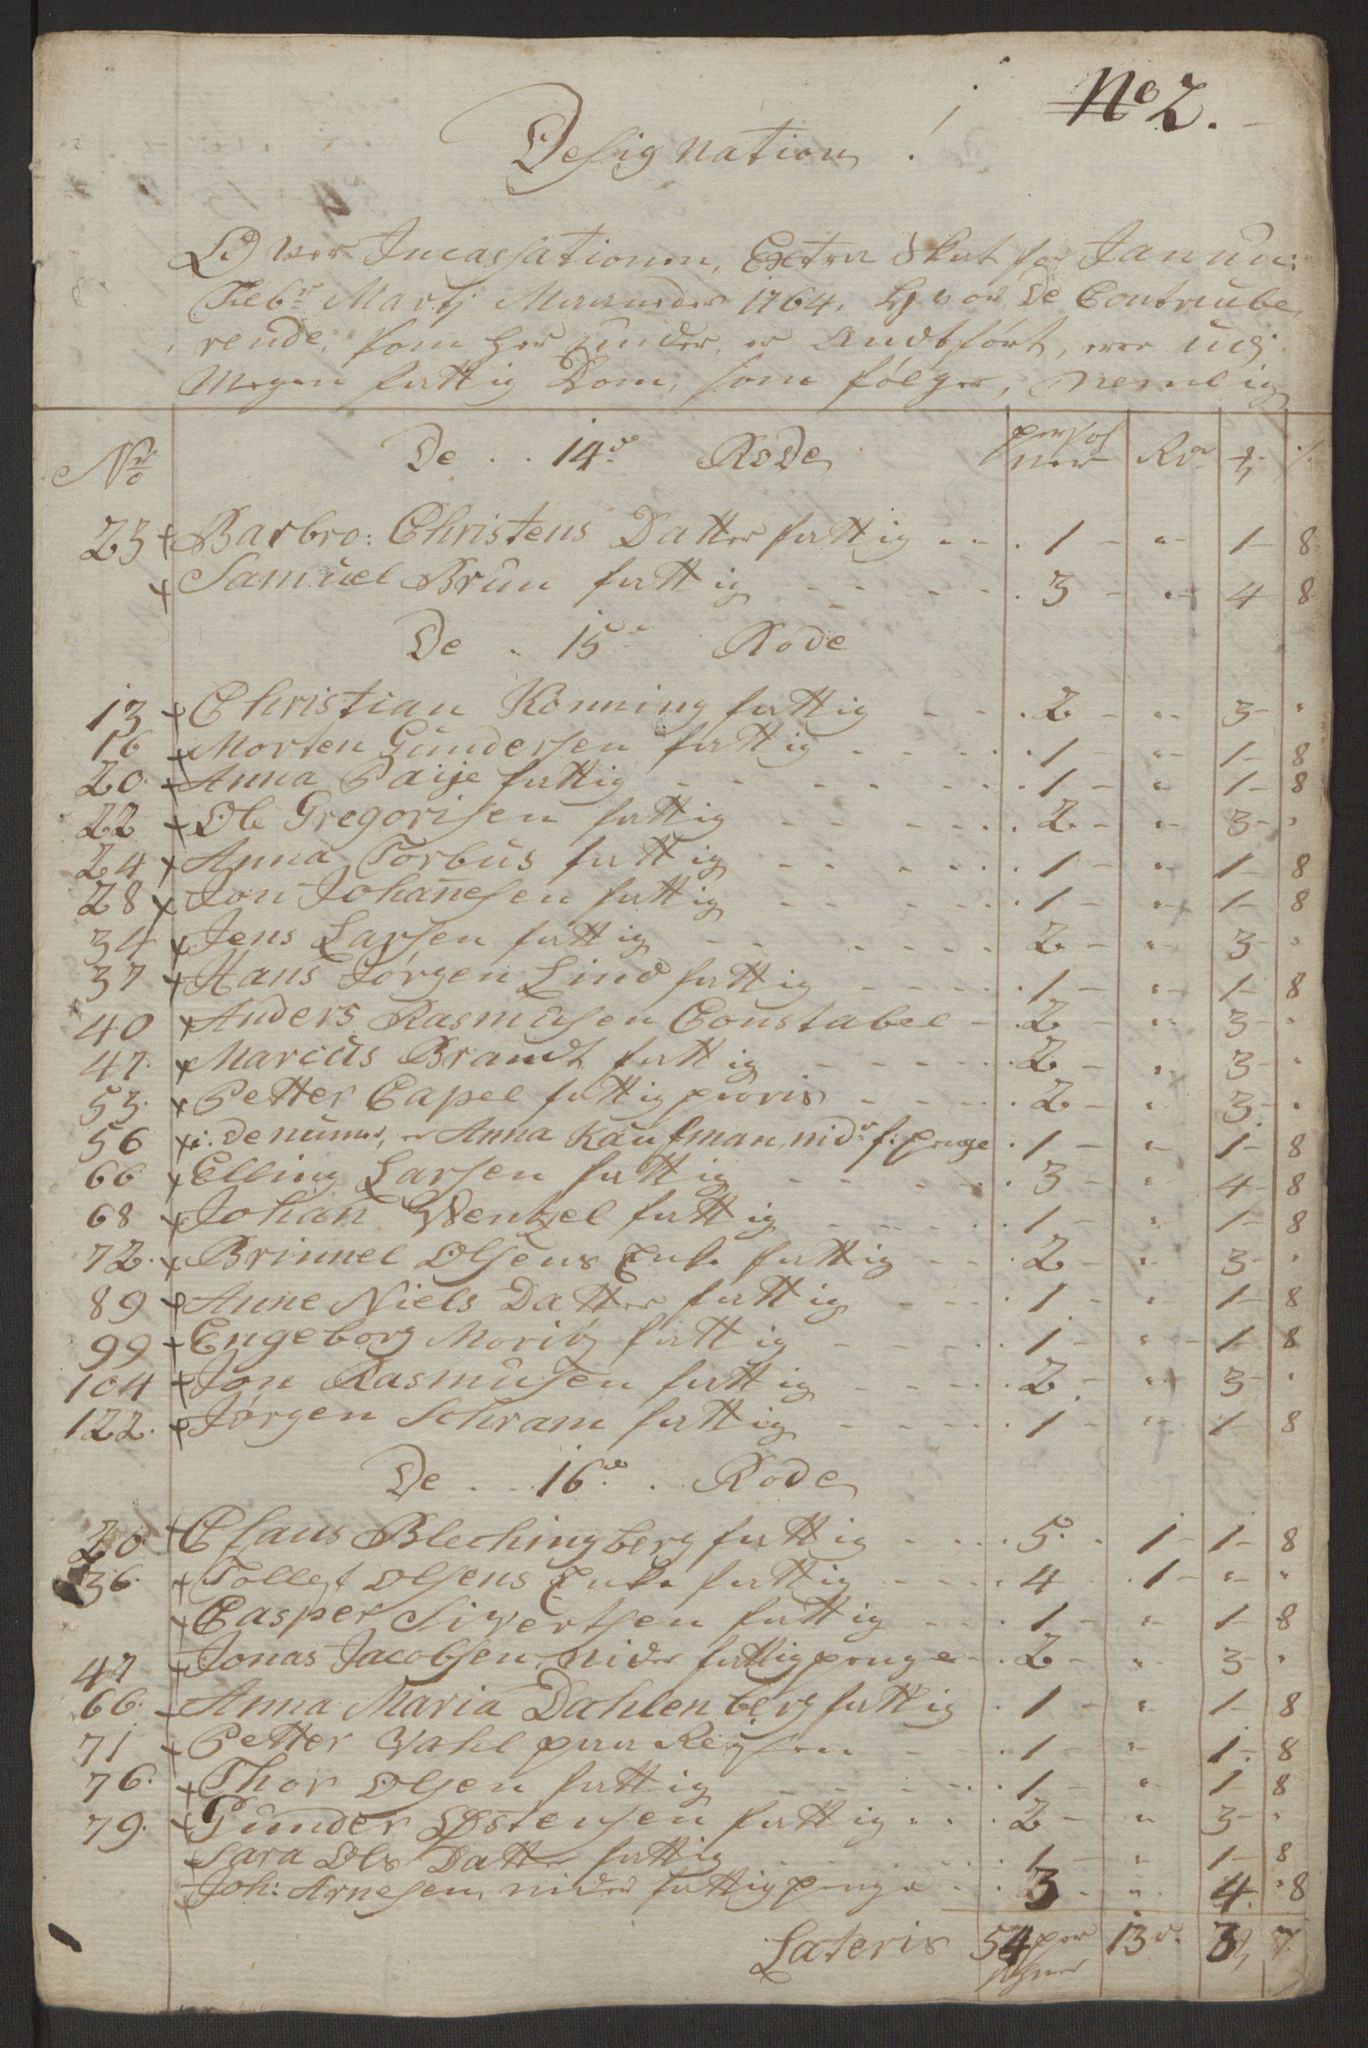 No 2.
Designation
Over Incassationen, Extra Skat for Januu:
Feb: Martj Maaneder 1764, Hvor De Contribue
rende, som her under, er Andført, ere udj
Megen fattig Dom, som følger, nemlig
No De 14de Rode persohner Rdr ß
23 Barbro: Christens Datter fattig 1 " 1 8
Samuel Brun fattig 3 " 4 8
De 15 Rode
13 Christian Konning fattig 2 " 3 "
16 Morten Gundersen fattig 1 " 1 8
20 Anna Paije fattig 1 " 1 8
22 Ole Gregorisen fattig 2 " 3 "
24 Anna Torbus fattig 1 " 1 8
28 Jon Johannesen fattig 1 " 1 8
34 Jens Larsen fattig 2 " 3 "
37 Hans Jørgen Lind fattig 1 " 1 8
40 Anders Rasmusen Constabel 2 " 3 "
47 Marcus Brandt fattig 2 " 3 "
53 Petter Capel fattig 2 " 3 "
56 Anna Kaufman, nider f: penge 1 " 1 8
66 Elling Larsen fattig 3 " 4 8
68 Johan Wentzel fattig 1 " 1 8
72 Brinnel Olsens Enke fattig 2 " 3 "
89 Anne Niels Datter fattig 1 " 1 8
99 Engeborg Moritz fattig 1 " 1 8
104 Jon Rasmusen fattig 2 " 3 "
122 Jørgen Schram fattig 1 " 1 8
De 16de Rode
20 Claus Blechingberg fattig 5 1 1 8
36 Tollef Olsens Enke fattig 4 1 " "
Casper Sivertsen fattig 1 " 1 8
47 Jonas Jacobsen nider fattigpenge 2 " 3 "
66 Anna Maria Dahlenberg fattig 1 " 1 8
71 Petter Vahl paa Reysen 1 " 1 8
76 Thor Olsen fattig 1 " 1 8
79 Gunder Østensen fattig 2 " 3 "
Sara Ols Datter fattig 1 " 1 8
Joh: Arnesen, nider fattigpenge 3 " 4 8
Lateris 54 persohner 13 3